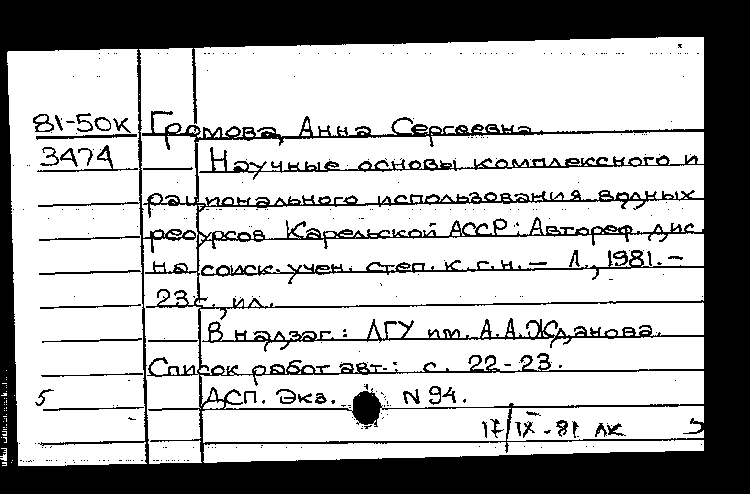 81-50К Громова, Анна Сергеевна.
3474 Научные основы комплексного и
рационального использования водных
ресурсов Карельской АССР: Автореф. дис.
на соиск. учен. степ. к.г.н. – Л., 1981. –
23с., ил.
В надзаг.: ЛГУ им. А.А.Жданова.
Список работ авт.: с. 22-23.
5 ДСП. Экз. N 94.
17/IX-81 ЛК